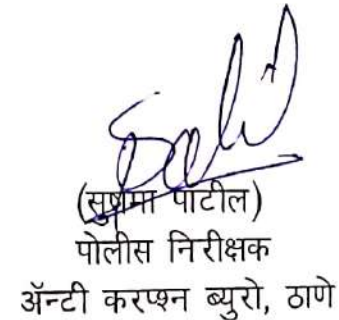 (सुषमा पाटील)
पोलीस निरीक्षक
ॲन्टी करप्शन ब्युरो, ठाणे